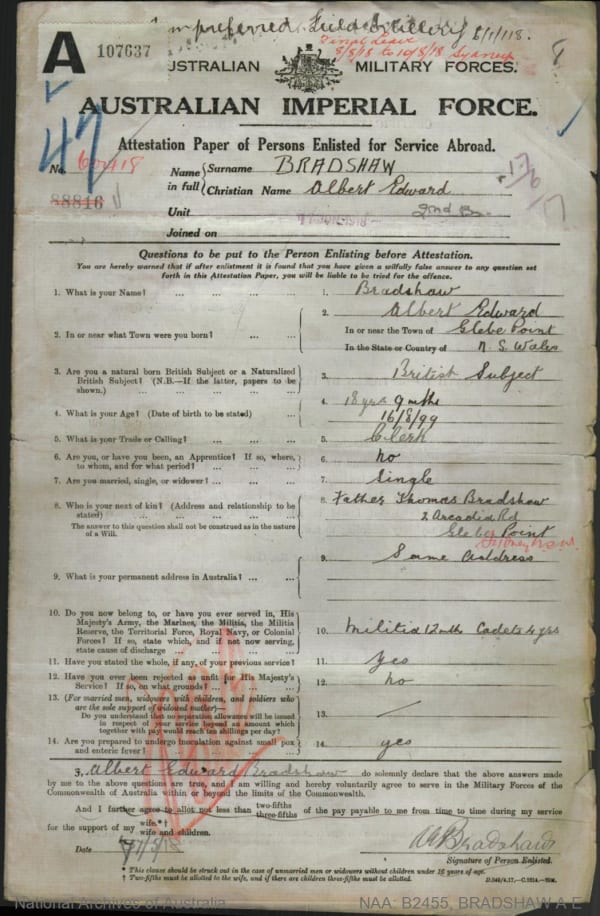 preferred Field Artillery 8/1/18.
Final Leave
8/8/18 to 10/8/18 Sydney
A
107637
AUSTRALIAN MILITARY FORCES.
47
AUSTRALIAN IMPERIAL FORCE.
Attestation Paper of Persons Enlisted for Service Abroad.
No.
88816
Name in full
Surname BRADSHAW
Christian Name Albert Edward
17/6/17
Unit
Joined on
Questions to be put to the Person Enlisting before Attestation.
You are hereby warned that if after enlistment it is found that you have given a wilfully false answer to any question set
forth in this Attestation Paper, you will be liable to be tried for the offence.
1. What is your Name? ... ... ...
1. Bradshaw
Albert Edward
2. In or near what Town were you born? ...
2.
In or near the Town of Glebe Point
In the State or Country of N. S. Wales
3. Are you a natural born British Subject or a Naturalized
British Subject? (N.B.—If the latter, papers to be
shown.) ... ... ... ...
3. British Subject
4. What is your Age? (Date of birth to be stated) ...
4. 18 yrs 9 mths
16/8/99
5. What is your Trade or Calling? ... ... ...
5. Clerk
6. Are you, or have you been, an Apprentice? If so, where,
to whom, and for what period? ... ... ...
6. No
7. Are you married, single, or widower? ... ...
7. Single
8. Who is your next of kin? (Address and relationship to be
stated) ... ... ... ...
The answer to this question shall not be construed as in the nature
of a Will.
8. Father Thomas Bradshaw
2 Arcadia Rd
Glebe Point
9. What is your permanent address in Australia? ... ...
9. Same address
10. Do you now belong to, or have you ever served in, His
Majesty's Army, the Marines, the Militia, the Militia
Reserve, the Territorial Force, Royal Navy, or Colonial
Forces? If so, state which, and if not now serving,
state cause of discharge ... ... ...
10. Militia 12 mths Cadets 4 yrs
11. Have you stated the whole, if any, of your previous service?
11. Yes
12. Have you ever been rejected as unfit for His Majesty's
Service? If so, on what grounds? ... ...
12. No
13. (For married men, widowers with children, and soldiers who
are the sole support of widowed mother)—
Do you understand that no separation allowance will be issued
in respect of your service beyond an amount which
together with pay would reach ten shillings per day?
13. /
14. Are you prepared to undergo inoculation against small pox
and enteric fever? ... ... ...
14. yes
I, Albert Edward Bradshaw do solemnly declare that the above answers made
by me to the above questions are true, and I am willing and hereby voluntarily agree to serve in the Military Forces of the
Commonwealth of Australia within or beyond the limits of the Commonwealth.
And I further agree to allot not less than two-fifths three-fifths of the pay payable to me from time to time during my service
for the support of my wife.*† wife and children.
Date
A E Bradshaw
Signature of Person Enlisted.
* This clause should be struck out in the case of unmarried men or widowers without children under 16 years of age.
† Two-fifths must be allotted to the wife, and if there are children three-fifths must be allotted.
National Archives of Australia
NAA: B2455, BRADSHAW A E